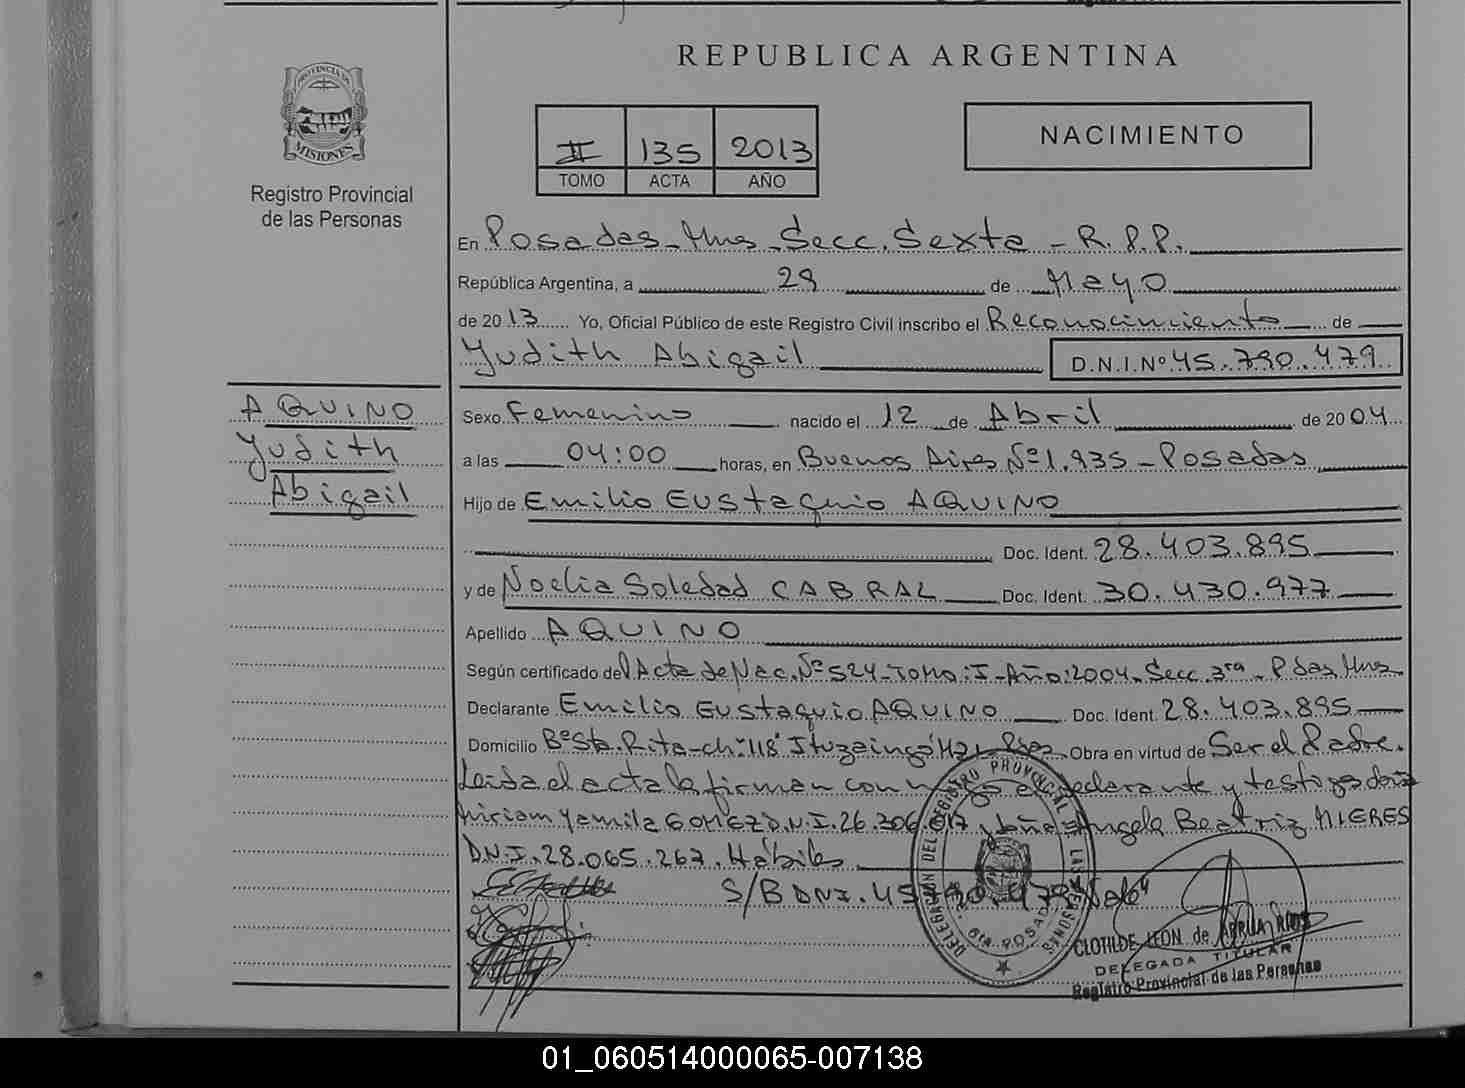 REPUBLICA ARGENTINA
PROVINCIA DE
MISIONES
Registro Provincial
de las Personas
II 135 2013
TOMO ACTA AÑO
NACIMIENTO
En Posadas - Mnes - Secc. Sexta - R.P.P.
República Argentina, a 29 de Mayo
de 2013 Yo, Oficial Público de este Registro Civil inscribo el Reconocimiento de
Yudith Abigail D.N.I.Nº 45.790.479
AQUINO
Yudith
Abigail
Sexo Femenino nacido el 12 de Abril de 2004
a las 04:00 horas, en Buenos Aires Nº 1.935 - Posadas
Hijo de Emilio Eustaquio AQUINO
Doc. Ident. 28.403.895
y de Noelia Soledad CABRAL Doc. Ident. 30.430.977
Apellido AQUINO
Según certificado del Acta de Nac. Nº 524 - Tomo: I - Año: 2004 - Secc. 3ra - Pdas Mnes
Declarante Emilio Eustaquio AQUINO Doc. Ident. 28.403.895
Domicilio Bº Sta. Rita - ch: 118 Ituzaingó Obra en virtud de Ser el Padre.
Leida el acta la firman con el declarante y testigo doña
Miriam Yamila GOMEZ D.N.I. 26.306. Angela Beatriz MIERES
D.N.I. 28.065.267. Hábiles
S/B DNI. 45.790.479 "Vale"
DELEGACION DEL REGISTRO PROVINCIAL DE LAS PERSONAS
6ta. POSADAS
CLOTILDE LEON de ARRUA RIOS
DELEGADA TITULAR
Registro Provincial de las Personas
01_060514000065-007138